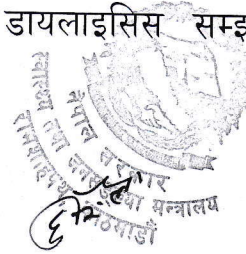 डायलाइसिस सम्झ
नेपाल सरकार
स्वास्थ्य तथा जनसंख्या मन्त्रालय
रामशाहपथ, काठमाडौं